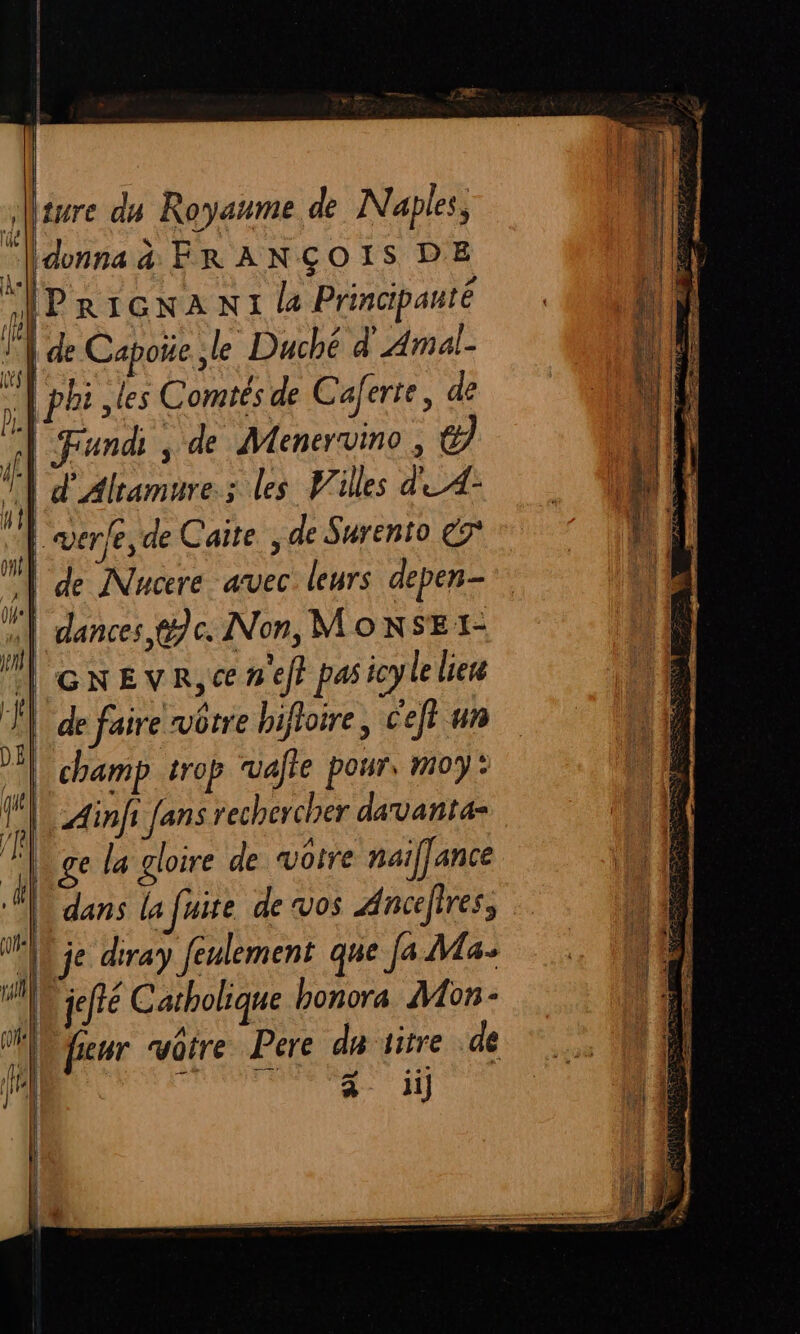 ture du Royaume de Naples,
donna à FRANÇOIS DE
PRIGNANI la Principauté
de Capoüe, le Duché d'Amal-
phi, les Comtés de Caserte, de
Fundi, de Menervino, &
d'Altamure; les Villes d'A-
verse, de Caite, de Surento &
de Nucere avec leurs depen-
dances, &c. Non, MONSEI-
GNEVR, ce n'est pas icy le lieu
de faire vôtre histoire, c'est un
champ trop vaste pour moy:
Ainsi sans rechercher davanta-
ge la gloire de vôtre naissance
dans la suite de vos Ancestres,
je diray seulement que sa Ma-
jesté Catholique honora Mon-
sieur vôtre Pere du titre de
ã iij